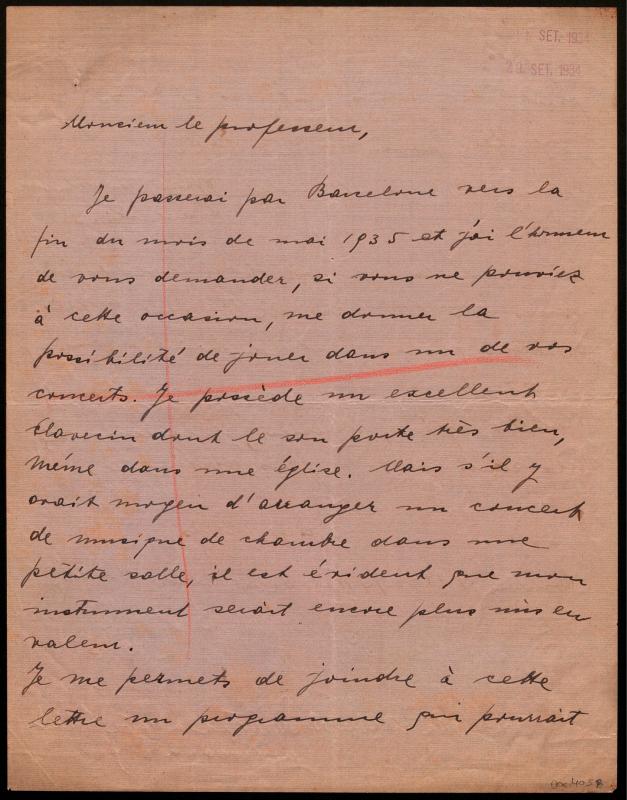 SET. 1934
2 . SET. 1934
Monsieur le professeur,
Je passerai par Barcelone vers la
fin du mois de mai 1935 et j'ai l'honneur
de vous demander, si vous ne pouviez
à cette occasion, me donner la
possibilité de jouer dans un de vos
concerts. Je possède un excellent
clavecin dont le son porte très bien,
même dans une église. Mais s'il y
avait moyen d'arranger un concert
de musique de chambre dans une
petite salle, il est évident que mon
instrument serait encore plus mis en
valeur.
Je me permets de joindre à cette
lettre un programme qui pourrait